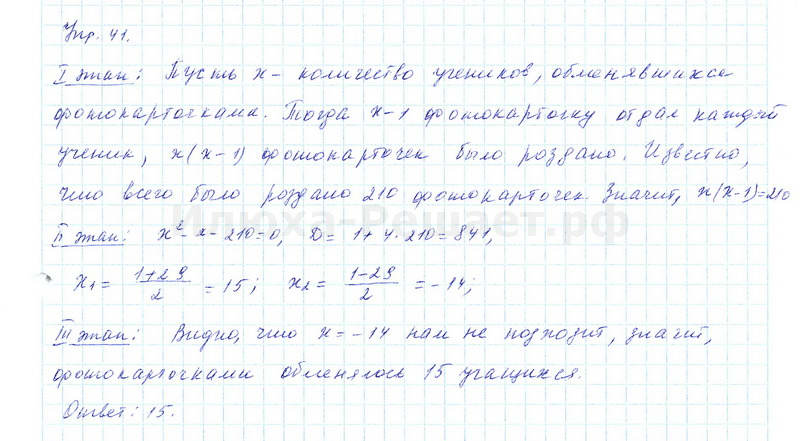 Упр. 41.
I этап: Пусть x - количество учеников, обменявшихся
фотокарточками. Тогда x-1 фотокарточку отдал каждый
ученик, x(x-1) фотокарточек было роздано. Известно,
что всего было роздано 210 фотокарточек. Значит, x(x-1)=210
II этап: x²-x-210=0, D=1+4·210=841,
x₁= (1+29)/2 =15; x₂= (1-29)/2 =-14;
III этап: Видно, что x=-14 нам не подходит, значит,
фотокарточками обменялось 15 учащихся.
Ответ: 15.
Илюха-Решает.рф